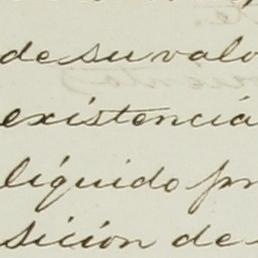 de su valo
existencia
líquido pr
sición de